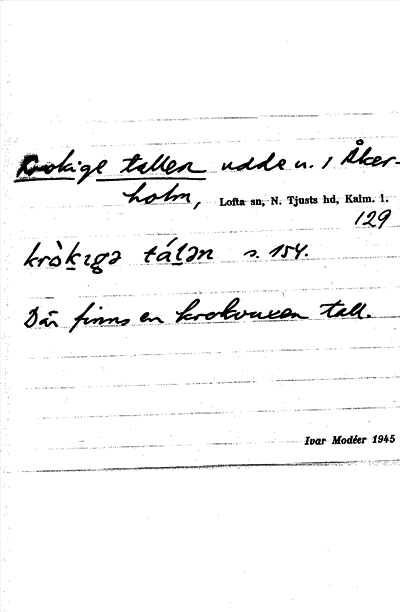 Krokige tallen udde u. 1 Åker-
holm, Lofta sn, N. Tjusts hd, Kalm. l.
129
kròkıgə tálən s. 154.
Där finns en krokvuxen tall.
Ivar Modéer 1945